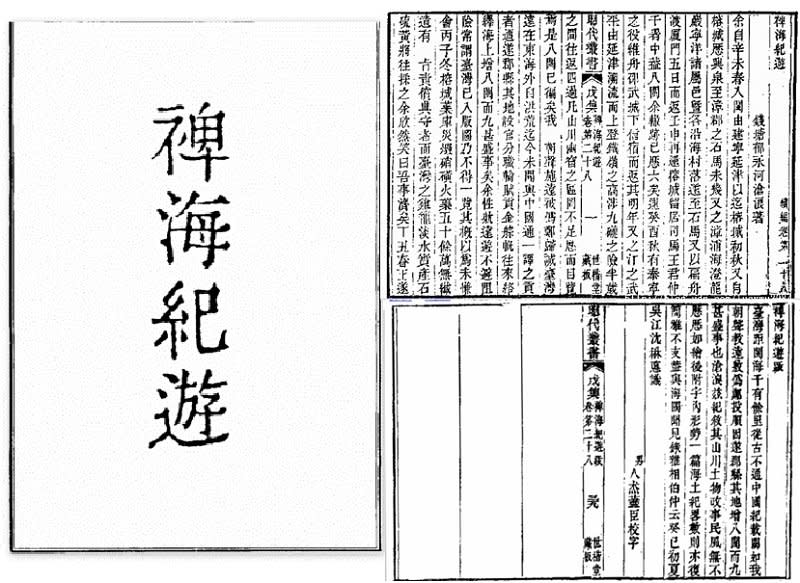 裨海紀遊
裨海紀遊
錢塘郁永河滄浪著
余自辛未春入閩由建寧延津以迄榕城初秋又自
榕城歷興泉至漳郡之石馬未幾又之漳浦海澄龍
巖寧洋諸屬邑暨各沿海村落還至石馬又以扁舟
渡廈門五日而返壬申再還榕城留居司馬王君仲
千署中蓋八閩余轍跡已歷六矣癸酉秋有泰寧
之役維舟邵武城下信宿而返其明年又之汀之武
平由延津溯流而上登鐵嶺之高涉九龍之險半歲
昭代叢書
戊集
裨海紀遊
卷第二十八
一
世楷堂
藏板
之間往返四過凡山川幽窅之區罔不足歷而目覽
焉是八閩已徧矣我 朝聲施遠被偽鄭歸誠臺灣
遠在東海外自洪荒迄今未聞與中國通一譯之貢
者迺遂郡縣其地設官分職輸賦貢金賧帆往來絡
繹海上增八閩而九甚盛事矣余性耽遠遊不避阻
險常謂臺灣已入版圖乃不得一覽其概以為未慊
會丙子冬榕城藥庫災燬硝磺火藥五十餘萬無纖
遺有 旨責償典守者而臺灣之雞籠淡水實產石
硫黃將往採之余欣然笑曰吾事濟矣丁丑春王遂
裨海紀遊跋
臺灣距閩海千有餘里從古不通中國紀載闕如我
朝聲教遠敷偽鄭投順因遂郡縣其地增八閩而九
甚盛事也滄浪茲紀敘其山川土物故事民風無不
歷歷如繪後附宇內形勢一篇海上紀畧數則亦復
簡雅不支蓋與海國聞見錄雅相伯仲云癸巳初夏
吳江沈楙悳識
男人杰蓋臣校字
昭代叢書
戊集
裨海紀遊跋
卷第二十八
世楷堂
藏板